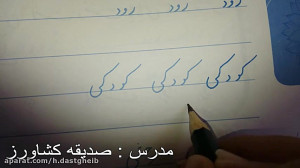 کودکی کودکی کودکی
مدرس : صدیقه کشاورز
aparat.com/h.dastgheib